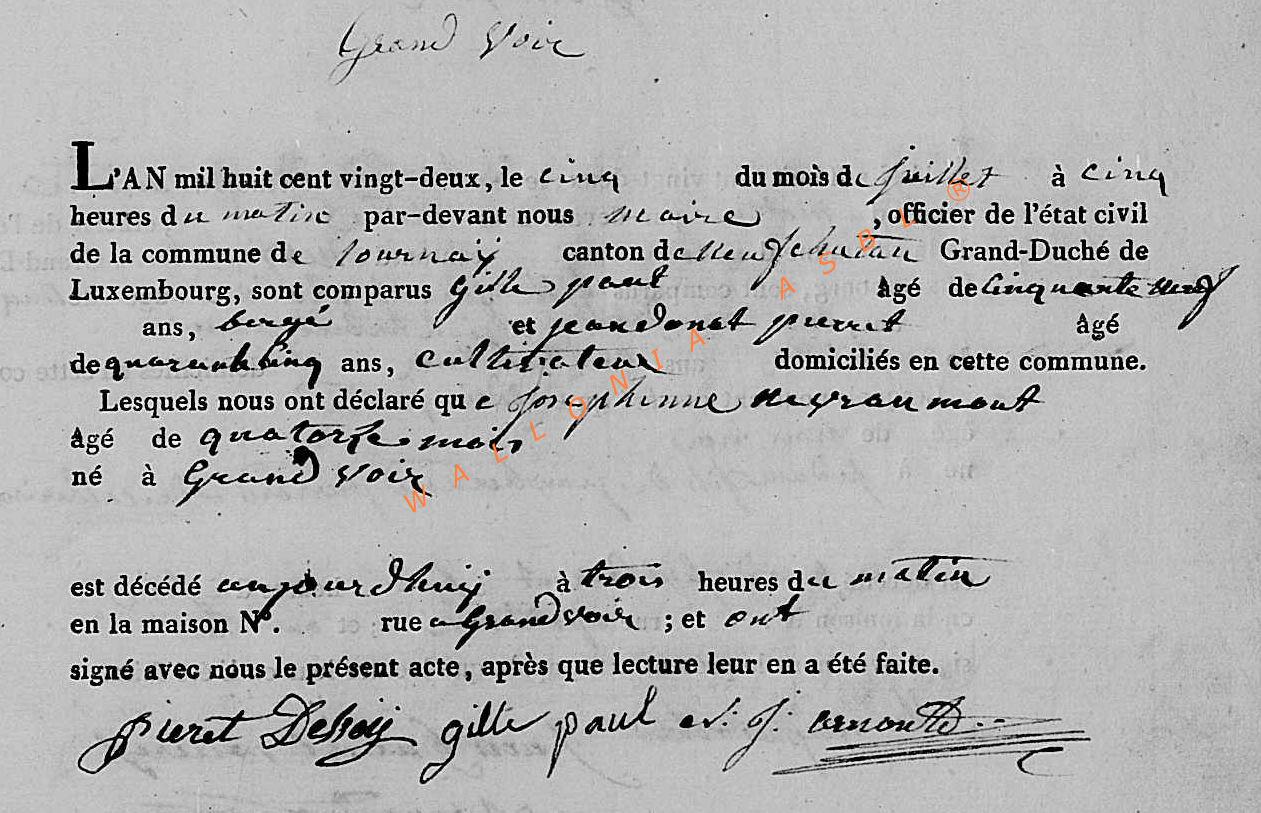 Grand Voir
L'AN mil huit cent vingt-deux, le cinq du mois de juillet à cinq
heures du matin par-devant nous maire , officier de l'état civil
de la commune de tournay canton de neufchatau Grand-Duché de
Luxembourg, sont comparus Gille paul âgé de cinquante neuf
ans, bergé et jean donat pierret âgé
de quarante cinq ans, cultivateur domiciliés en cette commune.
Lesquels nous ont déclaré que Josephinne
âgé de quatorse mois
né à Grand Voir
est décédé aujourdhuy à trois heures du matin
en la maison N°. rue a Grand voir ; et ont
signé avec nous le présent acte, après que lecture leur en a été faite.
pieret gille paul
WALLONIA ASBL ®